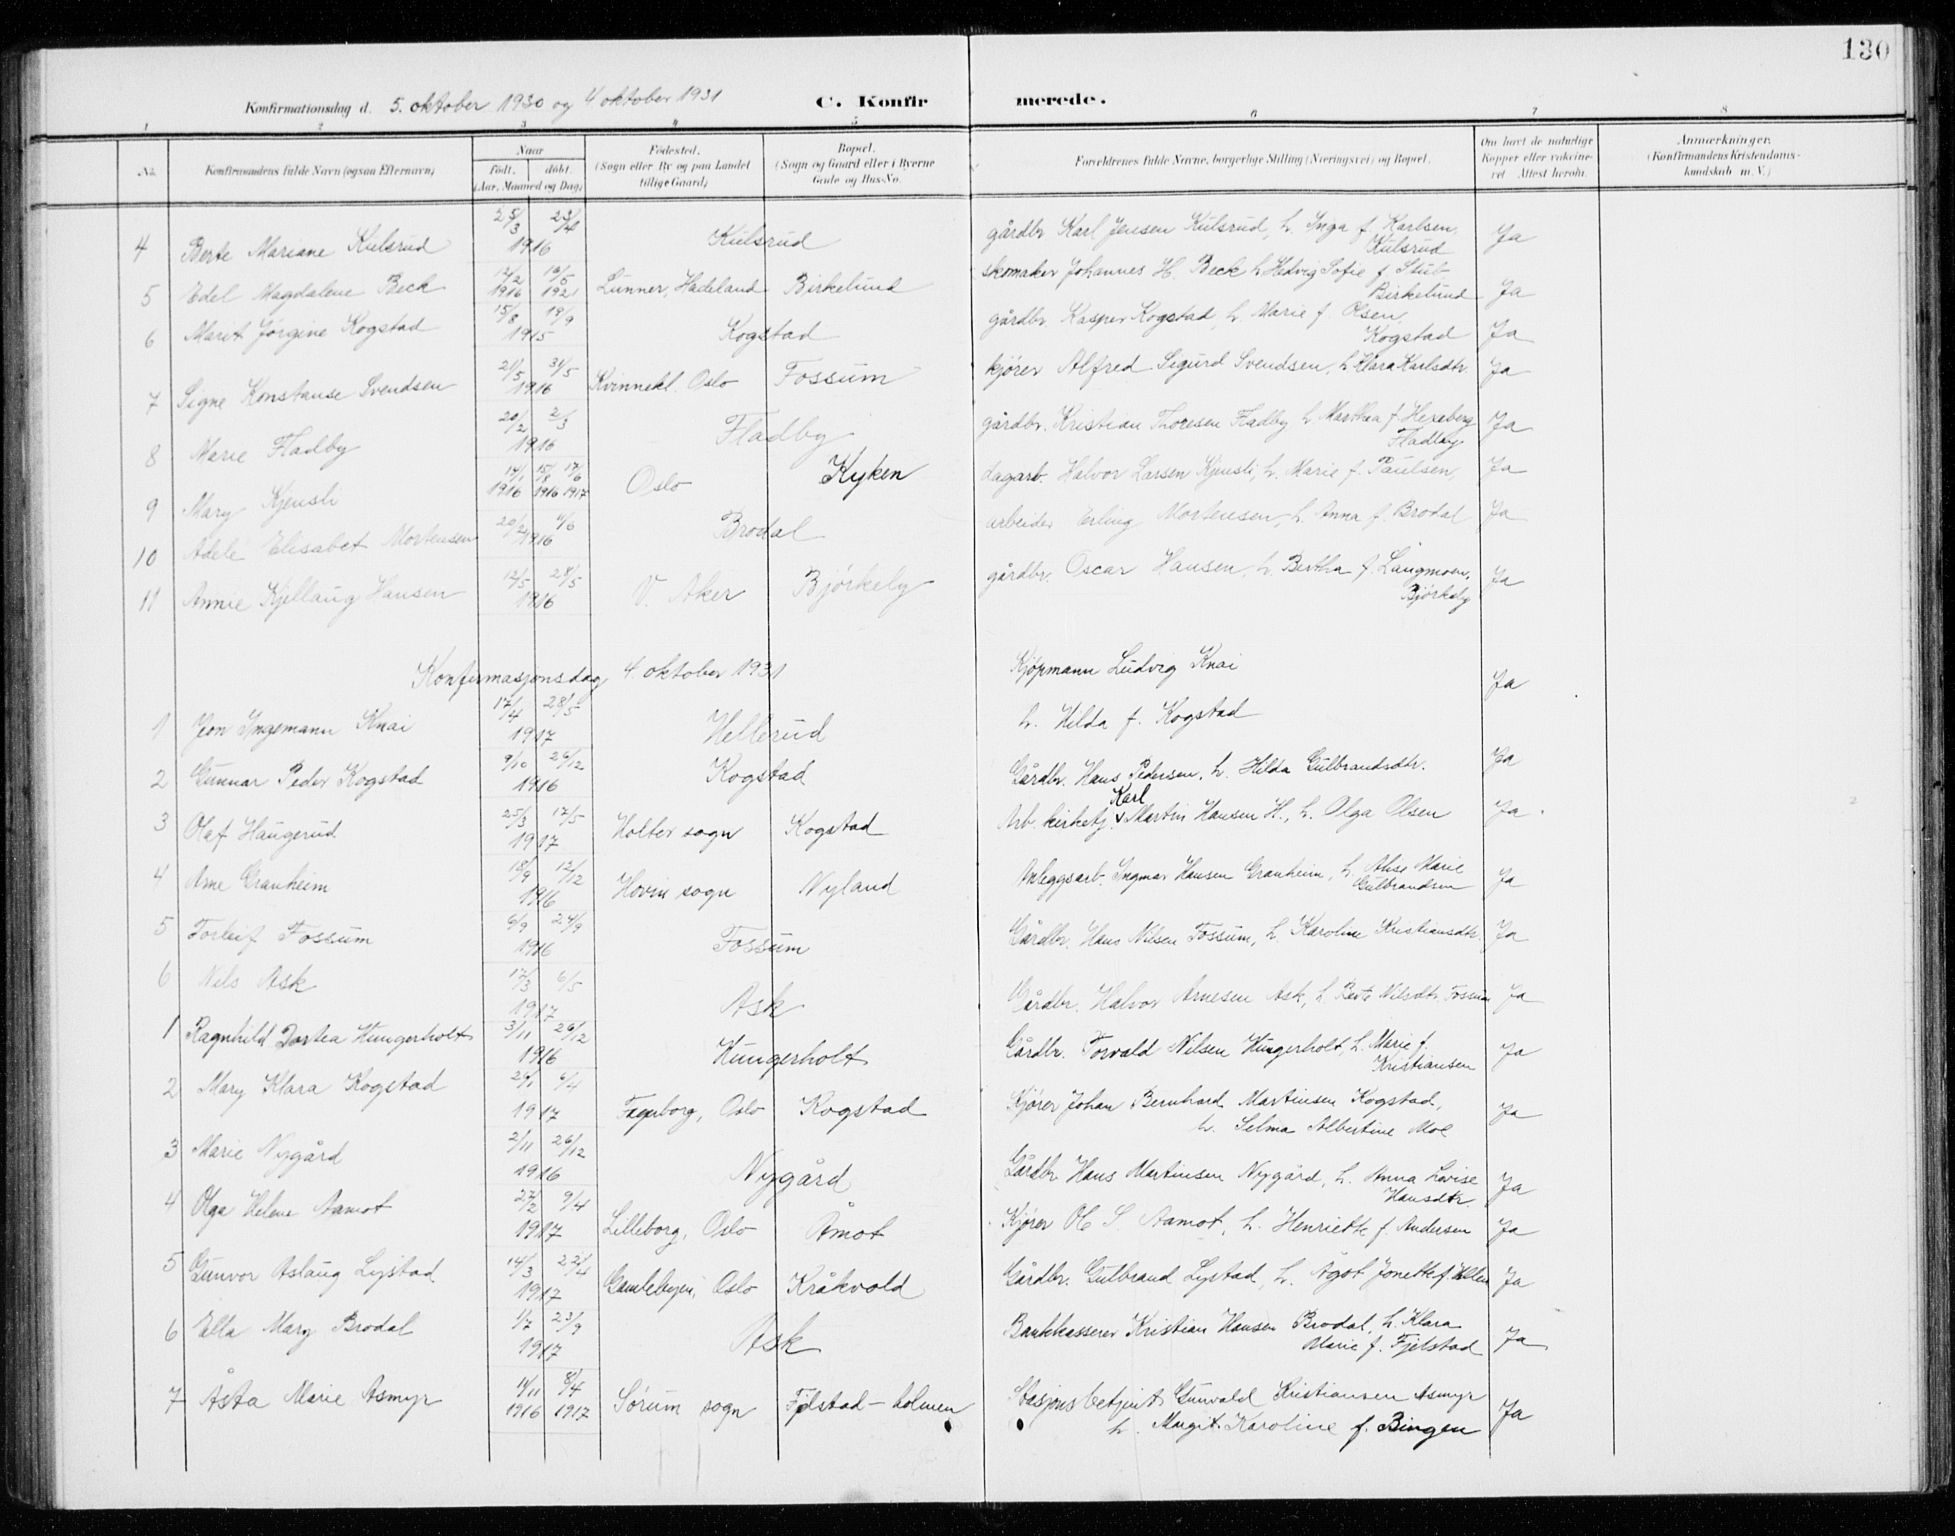 130
Konfirmationsdag d. 5. oktober 1930 og 4 oktober 1931 C. Konfirmerede.
1 2 3 4 5 6 7 8
No. Konfirmandens fulde Navn (ogsaa Efternavn) Naar født. døbt. (Aar, Maaned og Dag) Fødested. (Sogn eller By og paa Landet tillige Gaard) Bopæl. (Sogn og Gaard eller i Byerne Gade og Hus-No. Forældrenes fulde Navne, borgerlige Stilling (Næringsvei) og Bopæl. Om havt de naturlige Kopper eller vakcineret. Attest herom. Anmærkninger. (Konfirmandens Kristendomskundskab m. V.)
4 Berte Mariane Kulsrud 25/3 23/4 1916 Kulsrud gårdbr. Karl Jensen Kulsrud, h. Inga f. Karlsen, Kulsrud Ja
5 Edel Magdalene Beck 12/2 1916 16/5 1921 Lunner, Hadeland Birkelund skomaker Johannes H. Beck h Hedvig Sofie f. Stub Birkelund Ja
6 Marit Jørgine Kogstad 15/8 19/9 1915 Kogstad gårdbr. Kasper Kogstad, h. Marie f. Olsen, Kogstad Ja
7 Signe Konstanse Svendsen 21/5 31/5 1916 Kvinnekl. Oslo Fossum kjører Alfred Sigurd Svendsen, h Klara Karlsdtr. Ja
8 Marie Fladby 20/2 2/3 1916 Fladby gårdbr. Kristian Thoresen Fladby h Marthea f. Hexeberg Fladby Ja
9 Mary Kjensli 14/1 1916 15/8 1916 17/6 1917 Oslo Kyken dagarb. Halvor Larsen Kjensli, h. Marie f. Paulsen, Ja
10 Adele Elisabet Mortensen 20/2 4/6 1916 Brodal arbeider Erling Mortensen, h. Anna f. Brodal Ja
11 Annie Kjellaug Hansen 12/5 28/5 1916 V. Aker Bjørkely gårdbr. Oscar Hansen, h. Bertha f. Langmoen, Bjørkely Ja
Konfirmasjonsdag 4. oktober 1931
1 Jon Ingemann Knai 17/4 28/5 1917 Hellerud Kjøpmann Ludvig Knai h. Hilda f. Kogstad Ja
2 Gunnar Peder Kogstad 9/10 26/12 1916 Kogstad Gårdbr. Hans Pedersen, h. Hilda Gulbrandsdtr. Ja
3 Olaf Haugerud 25/3 17/5 1917 Holter sogn Kogstad Arb. kirketj. Karl Martin Hansen H., h. Olga Olsen Ja
4 Arne Granheim 18/9 12/12 1916 Hovin sogn Nyland Anleggsarb. Ingmar Hansen Granheim, h. Alise Marie Gulbrandsen Ja
5 Torleif Fossum 6/9 24/9 1916 Fossum Gårdbr. Hans Nilsen Fossum, h. Karoline Kristiansdtr. Ja
6 Nils Ask 17/3 6/5 1917 Ask Gårdbr. Halvor Arnesen Ask, h. Berte Nilsdtr. Fossum Ja
1 Ragnhild Dortea Hungerholt 3/11 26/12 1916 Hungerholt Gårdbr. Torvald Nilsen Hungerholt, h. Marie f. Kristiansen Ja
2 Mary Klara Kogstad 26/1 6/4 1917 Fagerborg, Oslo Kogstad Kjører Johan Bernhard Martinsen Kogstad, h. Selma Albertine Moe Ja
3 Marie Nygård 2/11 26/12 1916 Nygård Gårdbr Hans Martinsen Nygård, h. Anna Lovise Hansdtr. Ja
4 Olga Helene Aamot 27/2 9/4 1917 Lilleborg, Oslo Åmot Kjører Ole S. Aamot, h. Henriette f. Andersen Ja
5 Gunvor Aslaug Lystad 14/3 22/4 1917 Gamlebyen, Oslo Kråkvold Gårdbr. Gulbrand Lystad, h. Ågot Jonette f. Ja
6 Ella Mary Brodal 1/7 23/9 1917 Ask Bankkasserer Kristian Hansen Brodal, h. Klara Marie f. Fjelstad Ja
7 Åsta Marie Asmyr 11/11 1916 8/4 1917 Sørum sogn Fjelstad-holmen Stasjonsbetjent Gunvald Kristiansen Asmyr h. Margit Karoline f. Bingen Ja